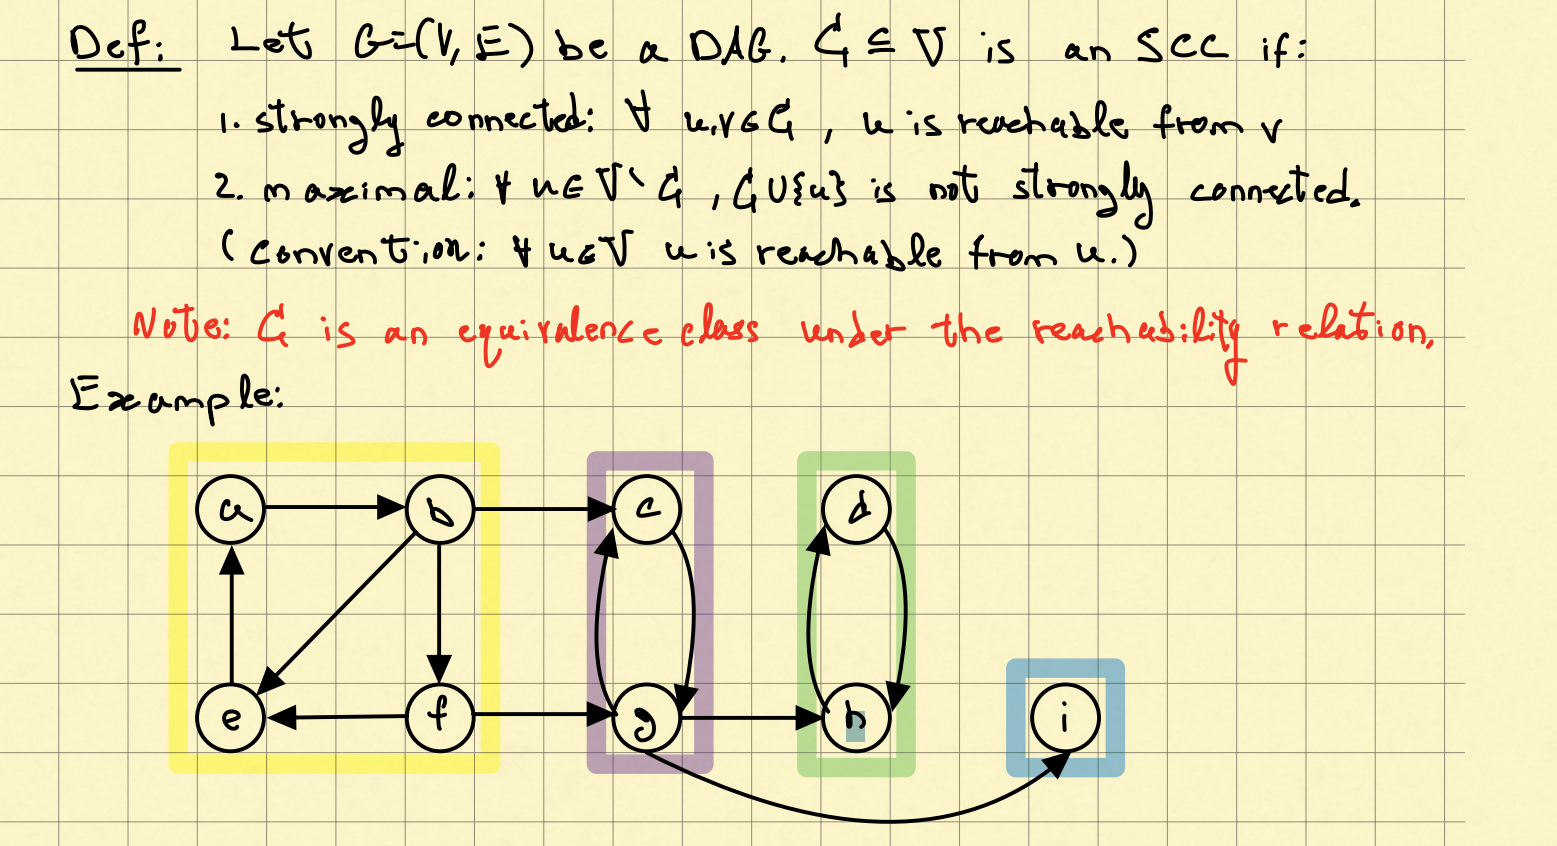 Def: Let G=(V,E) be a DAG. C ⊆ V is an SCC if:
1. strongly connected: ∀ u,v∈C, u is reachable from v
2. maximal: ∀ u∈V\C, C∪{u} is not strongly connected.
(convention: ∀ u∈V u is reachable from u.)
Note: C is an equivalence class under the reachability relation.
Example:
a b c d
e f g h i